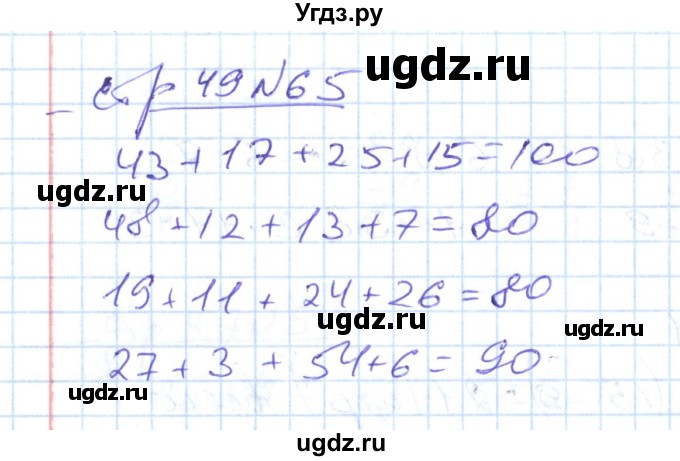 Угдз.ру
стр 49 №65
ugdz.ru
43+17+25+15=100
ugdz.ru
48+12+13+7=80
19+11+24+26=80
ugdz.ru
27+3+54+6=90
ugdz.ru
ugdz.ru